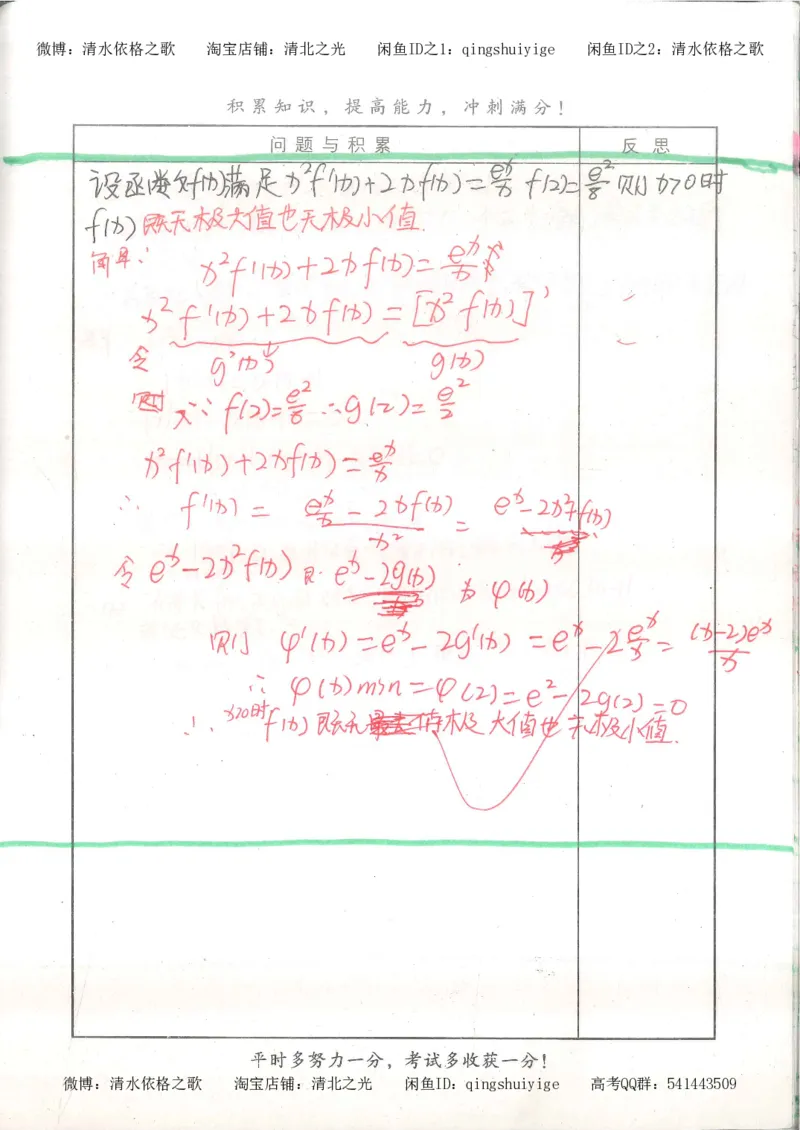 微博：清水依格之歌 淘宝店铺：清北之光 闲鱼ID之1：qingshuiyige 闲鱼ID之2：清水依格之歌
积累知识，提高能力，冲刺满分！
问题与积累 反思
设函数f(x)满足x²f'(x)+2xf(x)=e^x/x f(2)=e²/8 则x>0时
f(x)既无极大值也无极小值.
解：x²f'(x)+2xf(x)=e^x/x
x²f'(x)+2xf(x)=[x²f(x)]'
令 g'(x) g(x)
则 又∵f(2)=e²/8 ∴g(2)=e²/2
x²f'(x)+2xf(x)=e^x/x
∴ f'(x)=(e^x/x-2xf(x))/x²=e^x-2x²f(x)
令e^x-2x²f(x) 即e^x-2g(x) 为φ(x)
则φ'(x)=e^x-2g'(x)=e^x-2e^x/x=(x-2)e^x/x
∴φ(x)min=φ(2)=e²-2g(2)=0
∴x>0时f(x)既无极大值也无极小值.
平时多努力一分，考试多收获一分！
微博：清水依格之歌 淘宝店铺：清北之光 闲鱼ID：qingshuiyige 高考QQ群：541443509